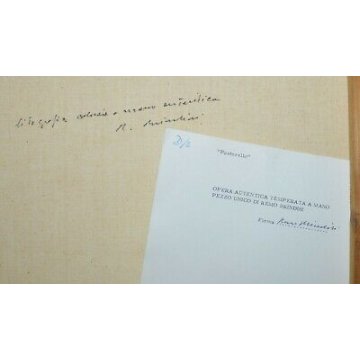 litografia colorata a mano autentica
R. Brindisi
D/2
"Pastorello"
OPERA AUTENTICA TEMPERATA A MANO
PEZZO UNICO DI REMO BRINDISI
Firma Remo Brindisi